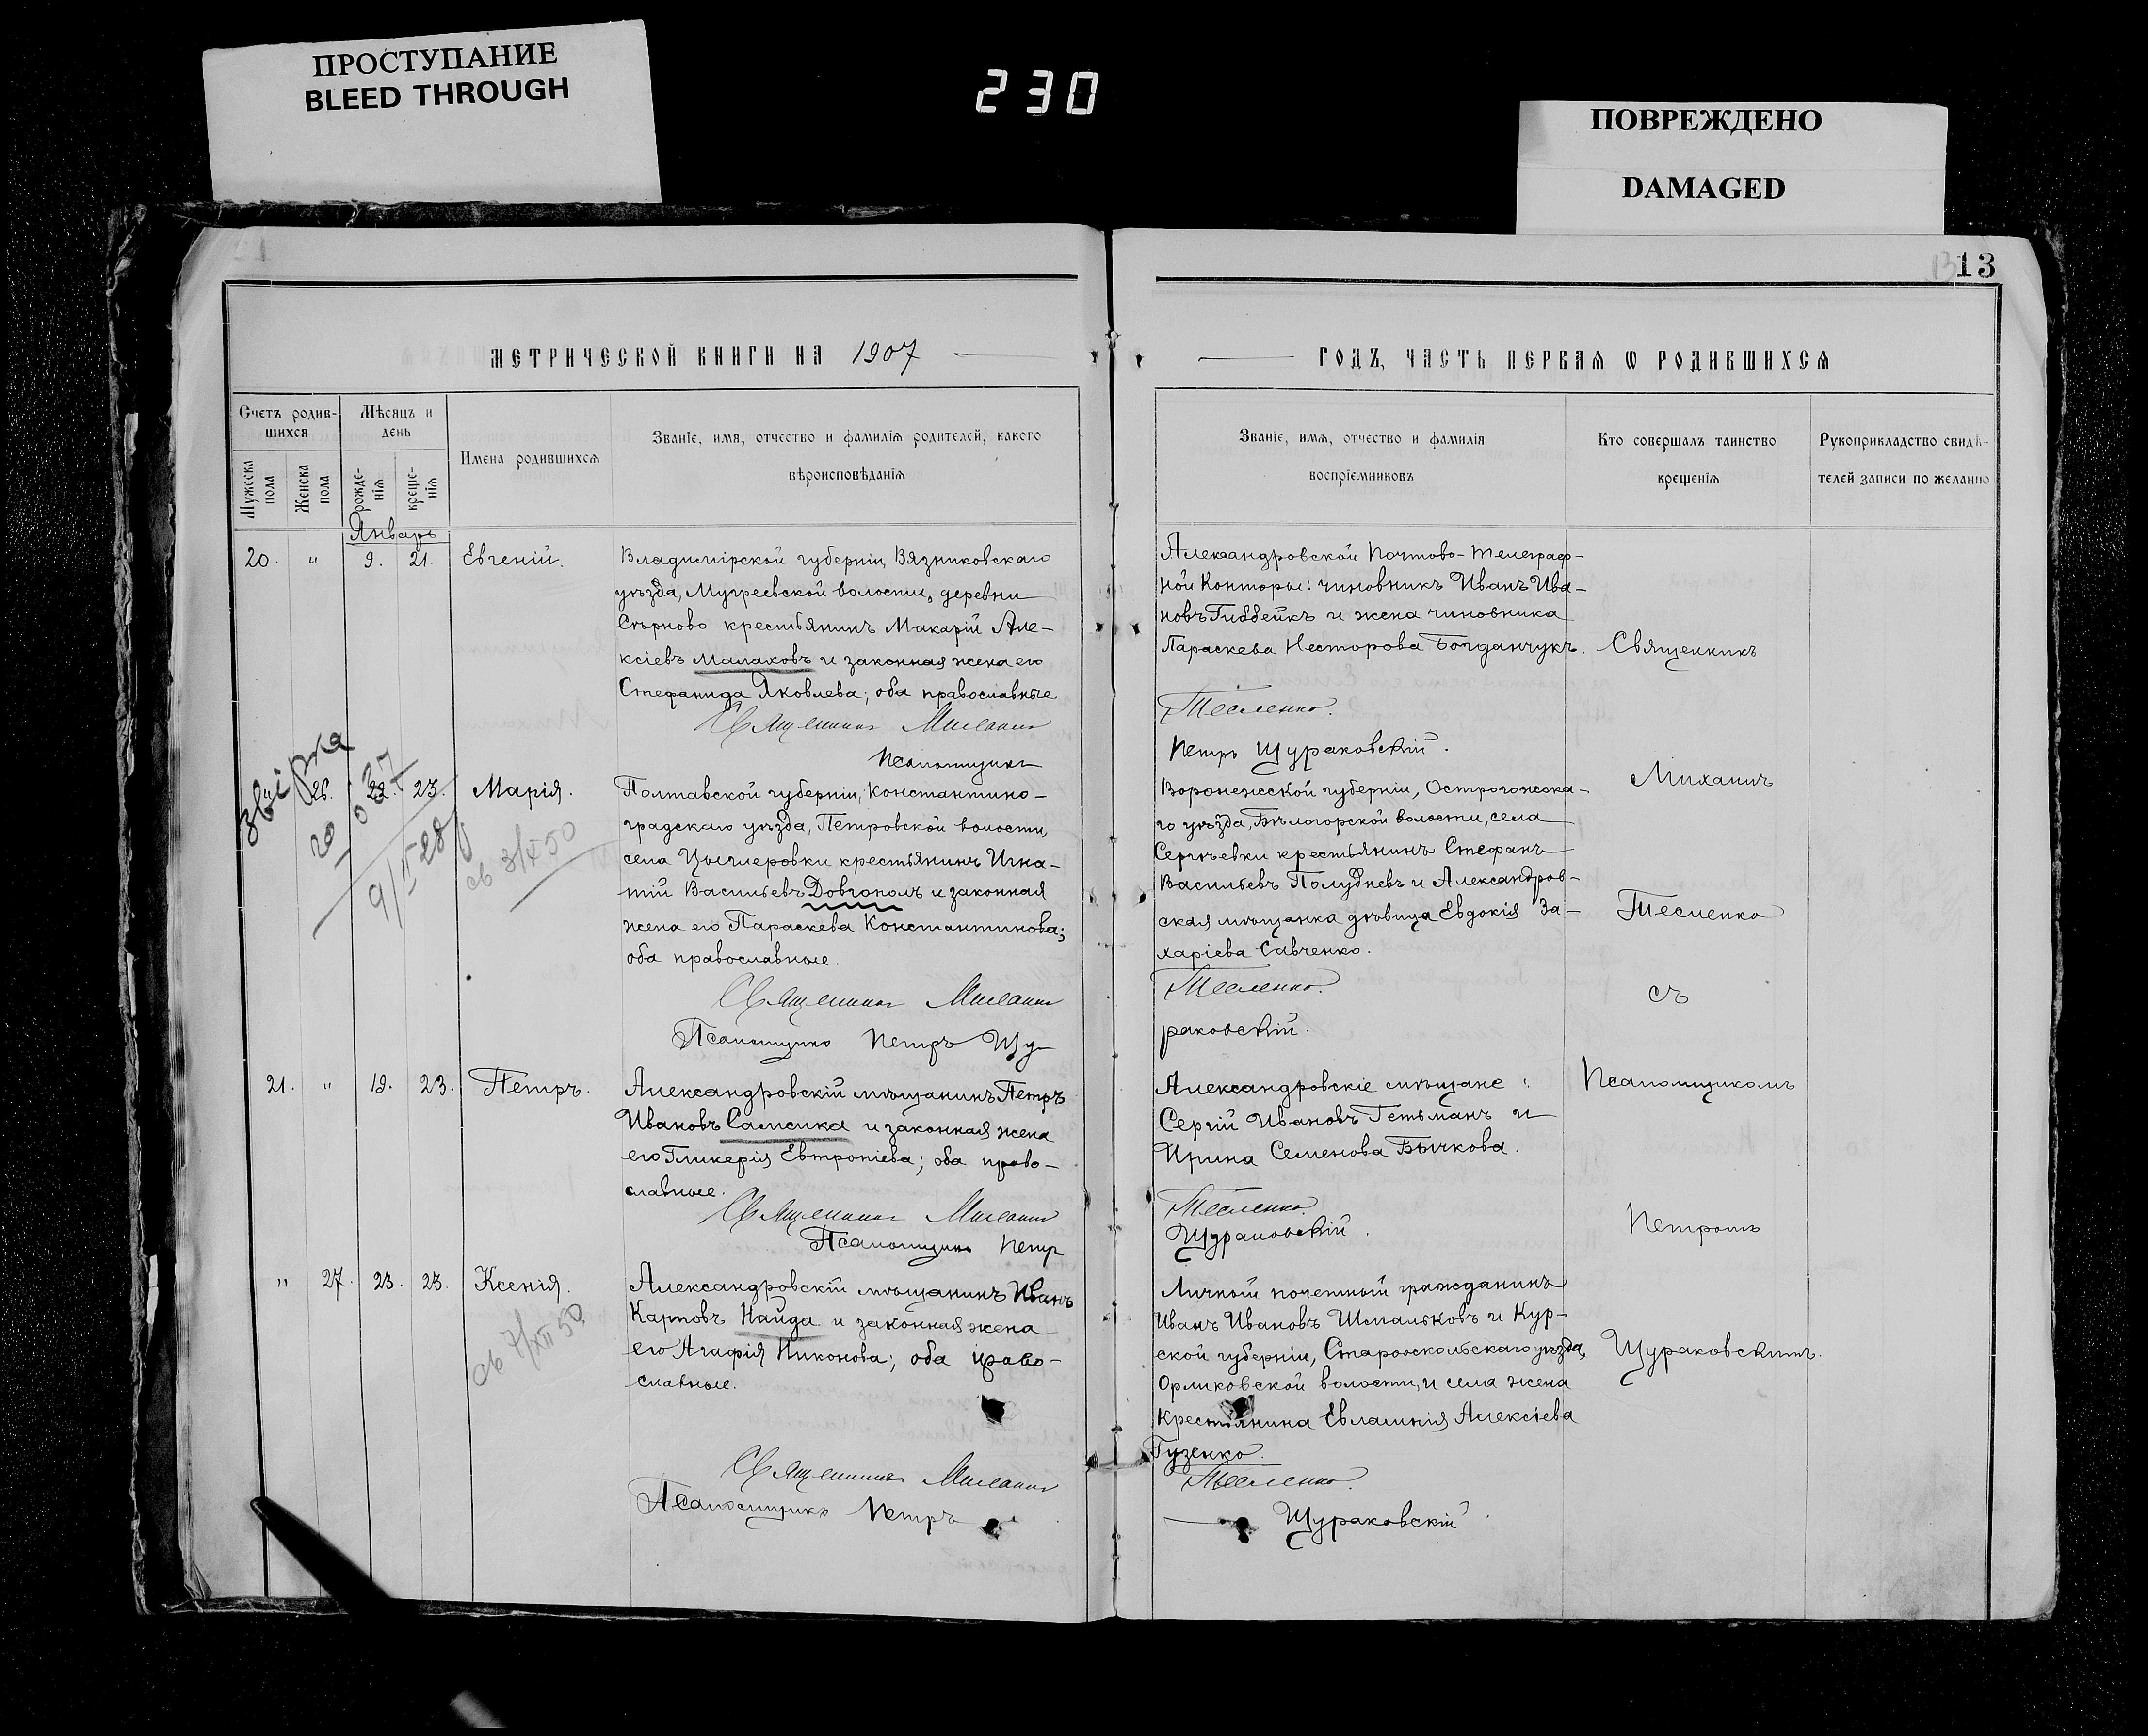 ПРОСТУПАНИЕ
BLEED THROUGH
230
ПОВРЕЖДЕНО
DAMAGED
13
МЕТРИЧЕСКОЙ КНИГИ НА 1907
ГОДЪ, ЧАСТЬ ПЕРВАЯ Ѡ РОДИВШИХСЯ
Счетъ родив-
шихся
Мужеска пола
Женска пола
Мѣсяцъ и
день
рожде-
нія
креще-
нія
Имена родившихся
Званіе, имя, отчество и фамилія родителей, какого
вѣроисповѣданія
Званіе, имя, отчество и фамилія
воспріемниковъ
Кто совершалъ таинство
крещенія
Рукоприкладство свидѣ-
телей записи по желанію
Январь
20. " 9. 21. Евгеній.
Владимірской губерніи, Вязниковскаго
уѣзда, Мугреевской волости, деревни
крестьянинъ Макарій Але-
ксіевъ Малаховъ и законная жена его
Стефанида Яковлева; оба православные
Священникъ Михаилъ
Псаломщикъ
Александровской Почтово-телеграф-
ной Конторы: чиновникъ Иванъ Ива-
новъ и жена чиновника
Параскева Несторова Богданчукъ.
Тесленко.
Петръ Щураковскій.
звірка
" 26. 22. 23. Марія.
9/V 28
св 3/X 50
Полтавской губерніи, Константино-
градскаго уѣзда, Петровской волости,
села Цыглеровки крестьянинъ Игна-
тій Васильевъ Довгополъ и законная
жена его Параскева Константинова;
оба православные.
Священникъ Михаилъ
Псаломщикъ Петръ Щу-
Воронежской губерніи, Острогожска-
го уѣзда, Бѣлогорской волости, села
Сергѣевки крестьянинъ Стефанъ
Васильевъ Полудневъ и Александров-
ская мѣщанка дѣвица Евдокія За-
харіева Савченко.
Тесленко.
раковскій.
21. " 19. 23. Петръ.
Александровскій мѣщанинъ Петръ
Ивановъ Самсика и законная жена
его Гликерія Евтропіева; оба право-
славные.
Священникъ Михаилъ
Псаломщикъ Петръ
Александровскіе мѣщане:
Сергій Ивановъ Гетьманъ и
Ирина Семенова Бычкова.
Тесленко.
Щураковскій.
" 27. 23. 23. Ксенія.
св 7/XII 50
Александровскій мѣщанинъ Иванъ
Карповъ Найда и законная жена
его Агафія Никонова; оба право-
славные.
Священникъ Михаилъ
Псаломщикъ Петръ
Личный почетный гражданинъ
Иванъ Ивановъ Шмальковъ и Кур-
ской губерніи, Старооскольскаго уѣзда,
Орликовской волости, и села жена
крестьянина Евлампія Алексіева
Гузенко.
Тесленко.
Щураковскій
Священникъ
Михаилъ
Тесленко
съ
Псаломщикомъ
Петромъ
Щураковскимъ.